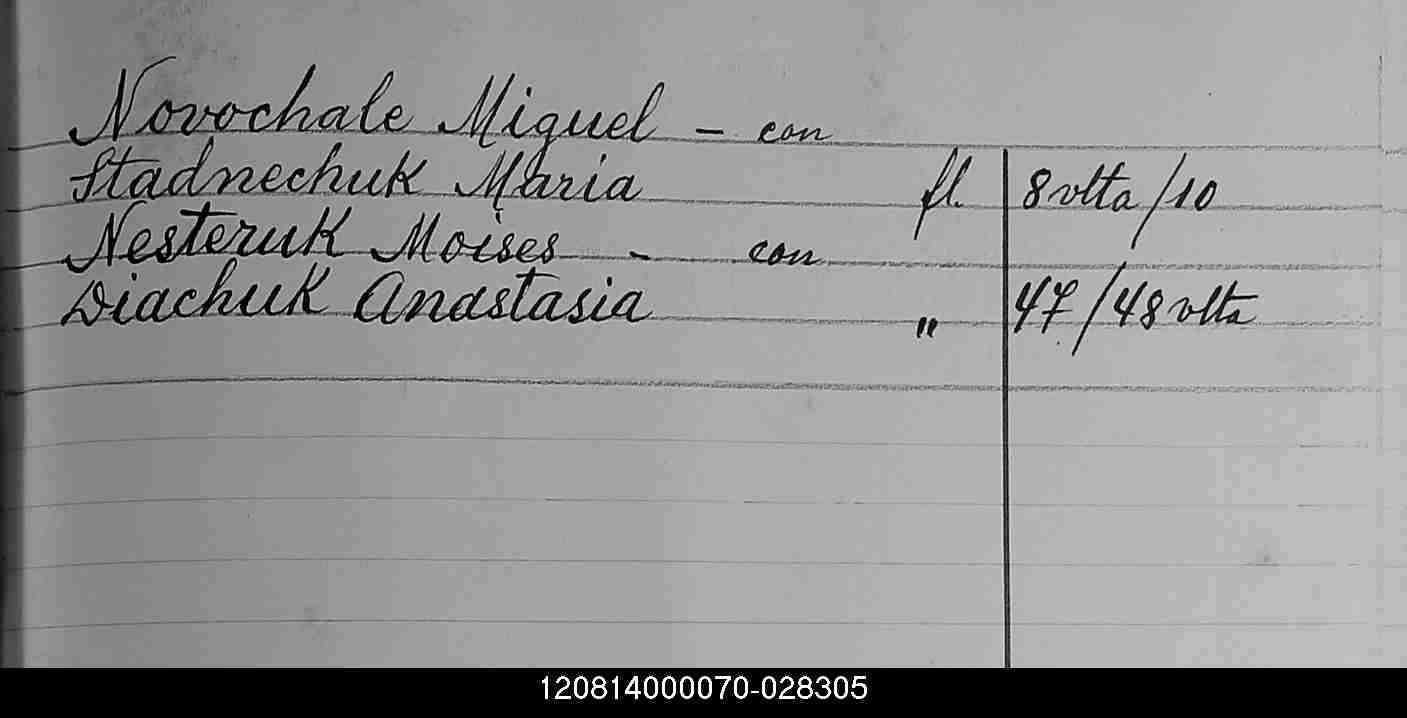 Novochale Miguel - con
Stadnechuk Maria fl. 8 volta/10
Nesteruk Moises - con
Diachuk Anastasia " 47/48 volta
120814000070-028305